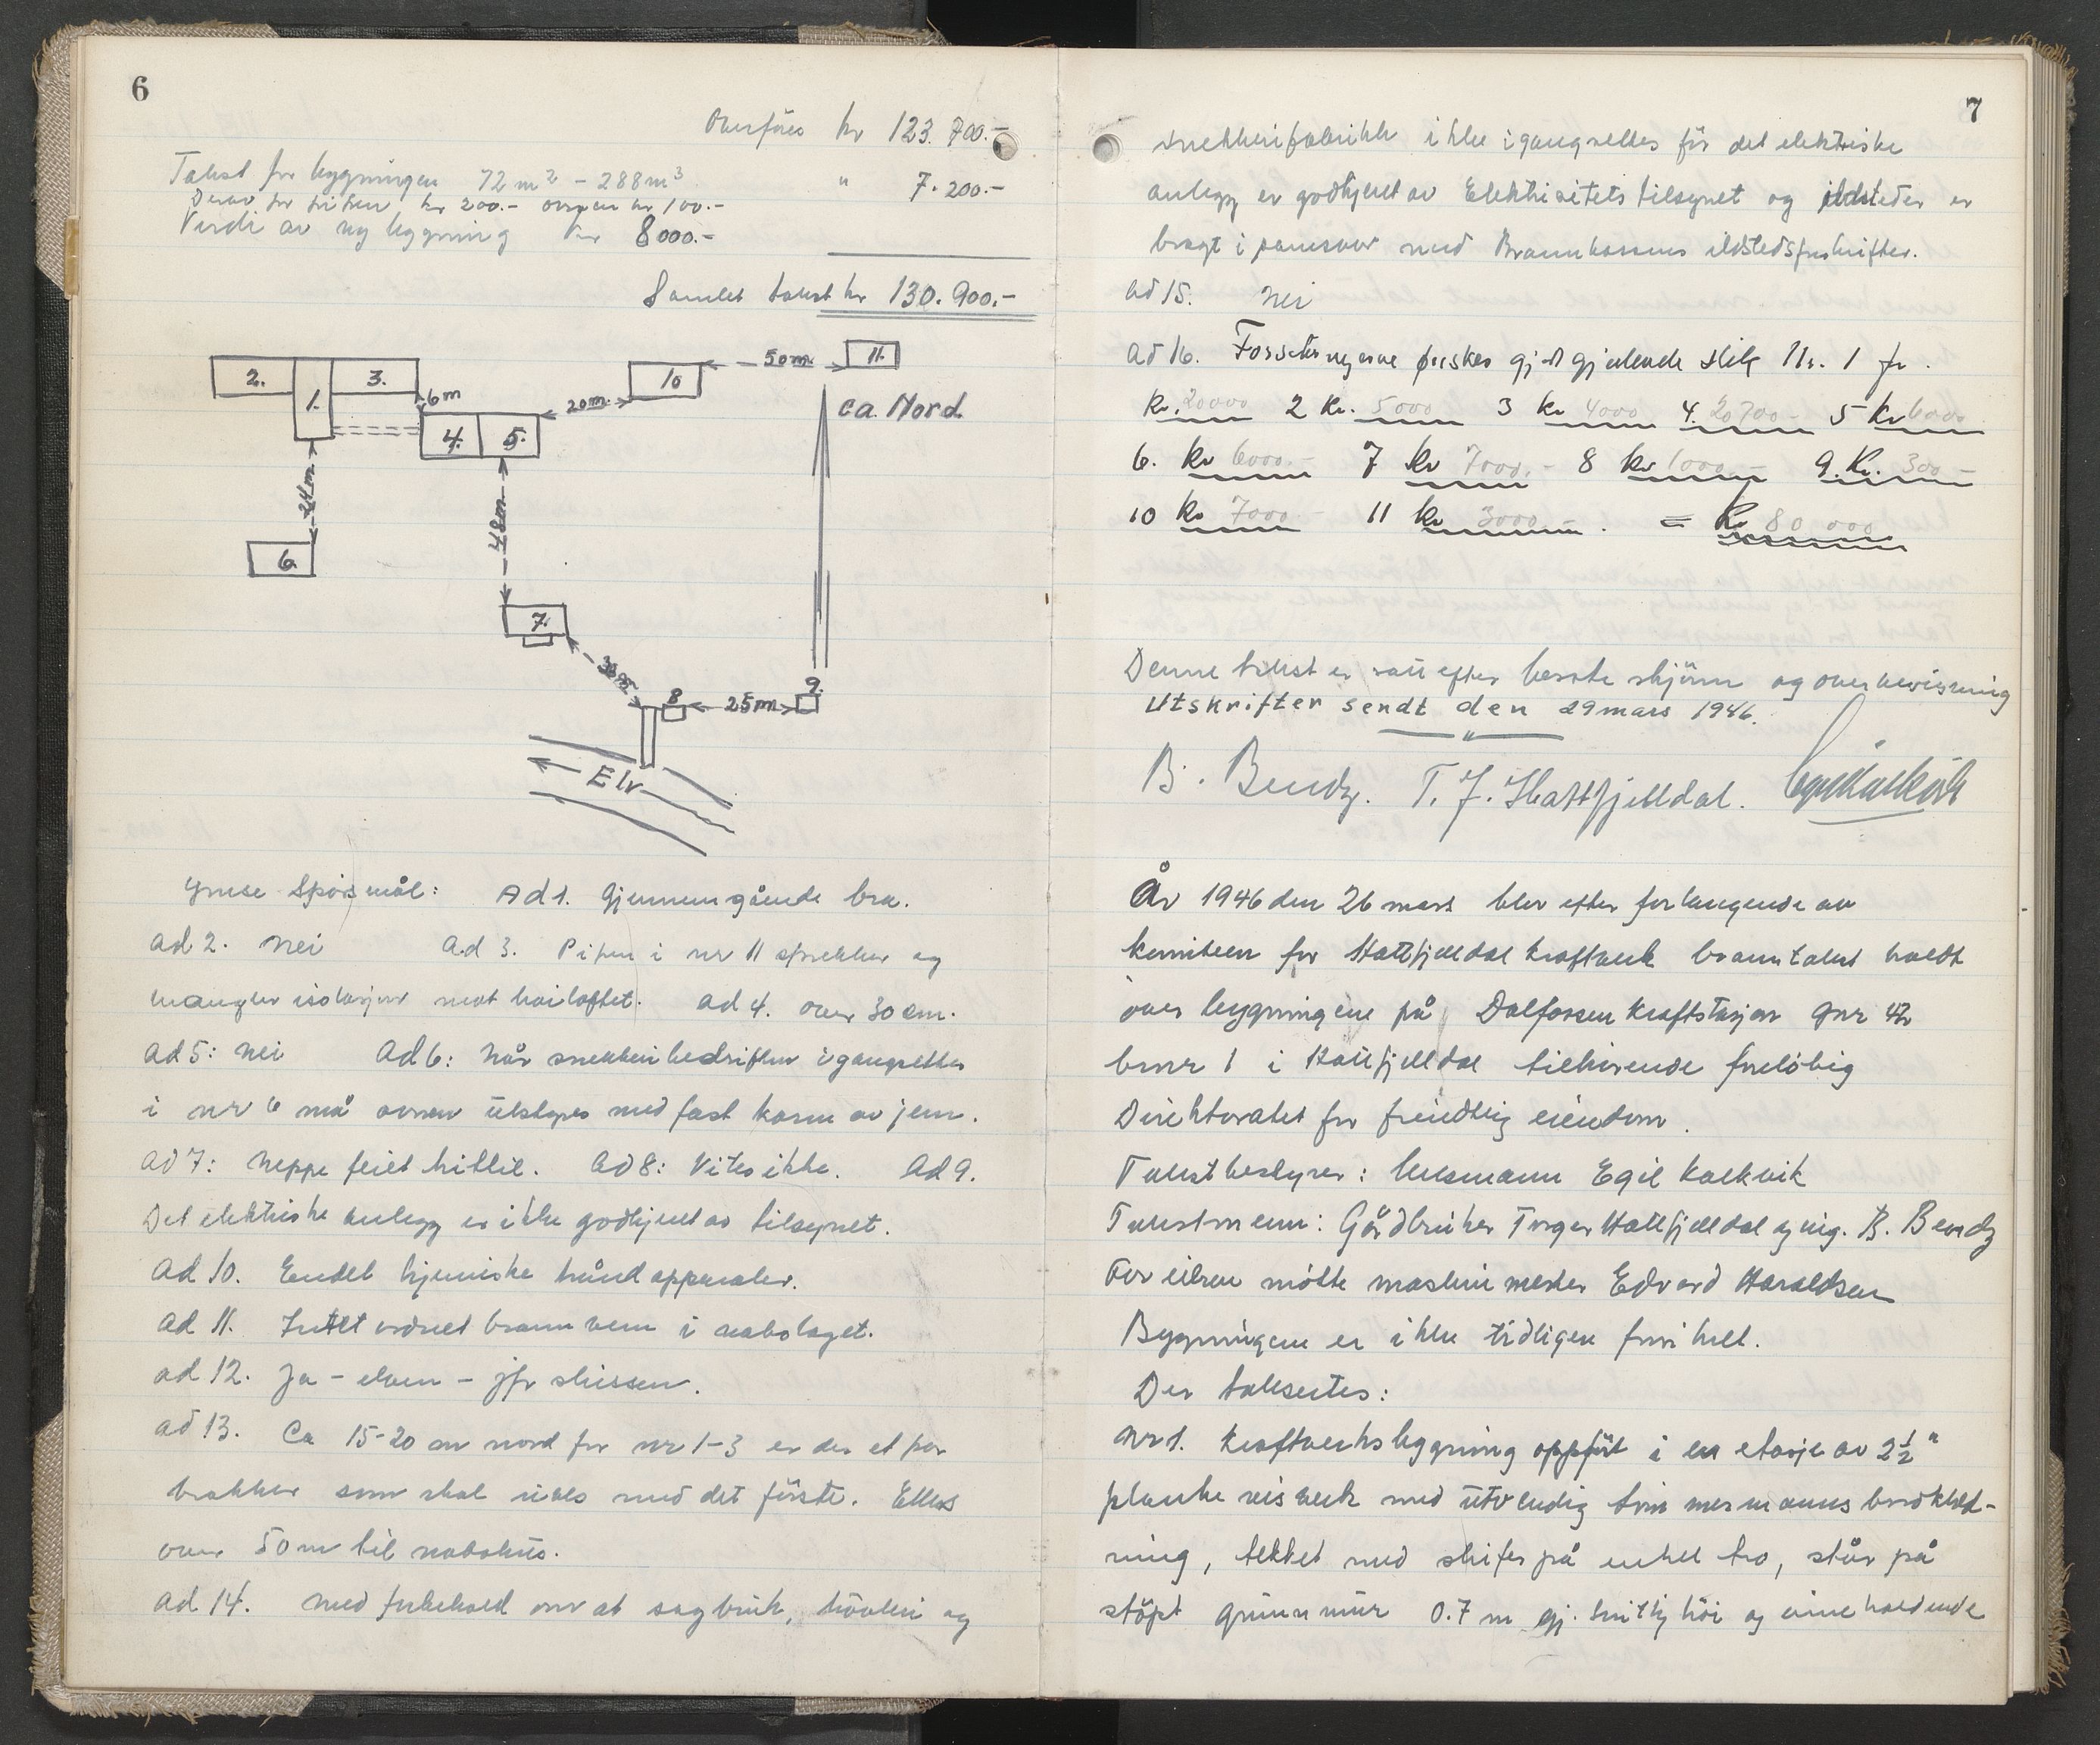 6
Overføres kr 123.700.-
Takst for bygningen 72 m² - 288 m³ " 7.200.-
Derav for pipen kr 200.- ovnen kr 100.-
Verdi av ny bygning kr 8000.-
Samlet takst kr 130.900.-
2. 1. 3. 6m 4. 5. 20m 10 50m 11.
ca. Nord
24m 48m
6
7.
30m
8 25m 9.
Elv
Spørsmål: Ad 1. Gjennemgående bra.
ad 2. Nei Ad 3. Pipen i nr 11 sprekker og
mangler isolasjon mot høiloftet. ad 4. over 30 cm.
ad 5: Nei Ad 6: Når snekkeribedriften igangsettes
i nr 6 må ovnen utstyres med fast karm av jern.
ad 7: Neppe feiet hittil. Ad 8: Vites ikke. Ad 9.
Det elektriske anlegg er ikke godkjent av tilsynet.
Ad 10. Endel kjemiske håndapparater.
Ad 11. Intet ordnet brannvern i nabolaget.
ad 12. Ja - elven - jfr skissen.
ad 13. Ca 15-20 m nord for nr 1-3 er der et par
brakker som skal rives med det første. Ellers
over 50 m til nabohus.
ad 14. Med forbehold om at sagbruk, høvleri og
7
snekkerifabrikk ikke igangsettes før det elektriske
anlegg er godkjent av Elektrisitetstilsynet og ildsteder er
bragt i samsvar med Brannkassens ildstedsforskrifter.
ad 15. Nei
ad 16. Forsikringerne ønskes gjort gjeldende slik Nr. 1 for
kr. 20000 2 kr. 5000 3 kr 4000 4. 20700- 5 kr 6000
6. kr 6000.- 7 kr 7000.- 8 kr 1000.- 9. kr. 300-
10 kr 7000- 11 kr 3000- . = kr 80 000
Denne takst er satt efter beste skjønn og overbevisning
Utskrifter sendt den 29 mars 1946.
B. Bendz. T. J. Hattfjelldal. Egil Kalkvik
År 1946 den 26 mars blev efter forlangende av
komiteen for Hattfjelldal Kraftverk branntakst holdt
over bygningene på Dalfossen Kraftstasjon gnr 42
bnr 1 i Hattfjelldal tilhørende foreløbig
Direktoratet for fiendtlig eiendom.
Takstbestyrer: Lensmann Egil Kalkvik
Takstmenn: Gårdbruker Torger Hattfjelldal og ing. B. Bendz
For eieren møtte maskinmester Edvard Haraldsen
Bygningene er ikke tidligere forsikret.
Der takseres:
Nr 1. Kraftverksbygning oppført i en etasje av 2½"
planke reisverk med utvendig tømmermanns bordkled-
ning, tekket med skifer på enkel tro, står på
støpt grunnmur 0.7 m gj.snitlig høi og inneholdende